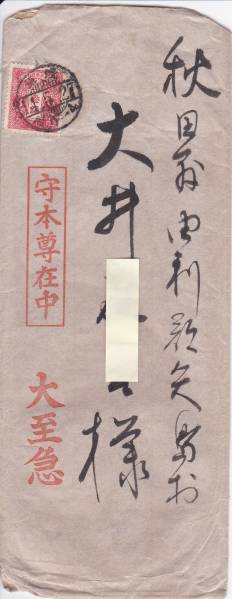 秋田県由利郡矢島町
大井
様
守本尊在中
大至急